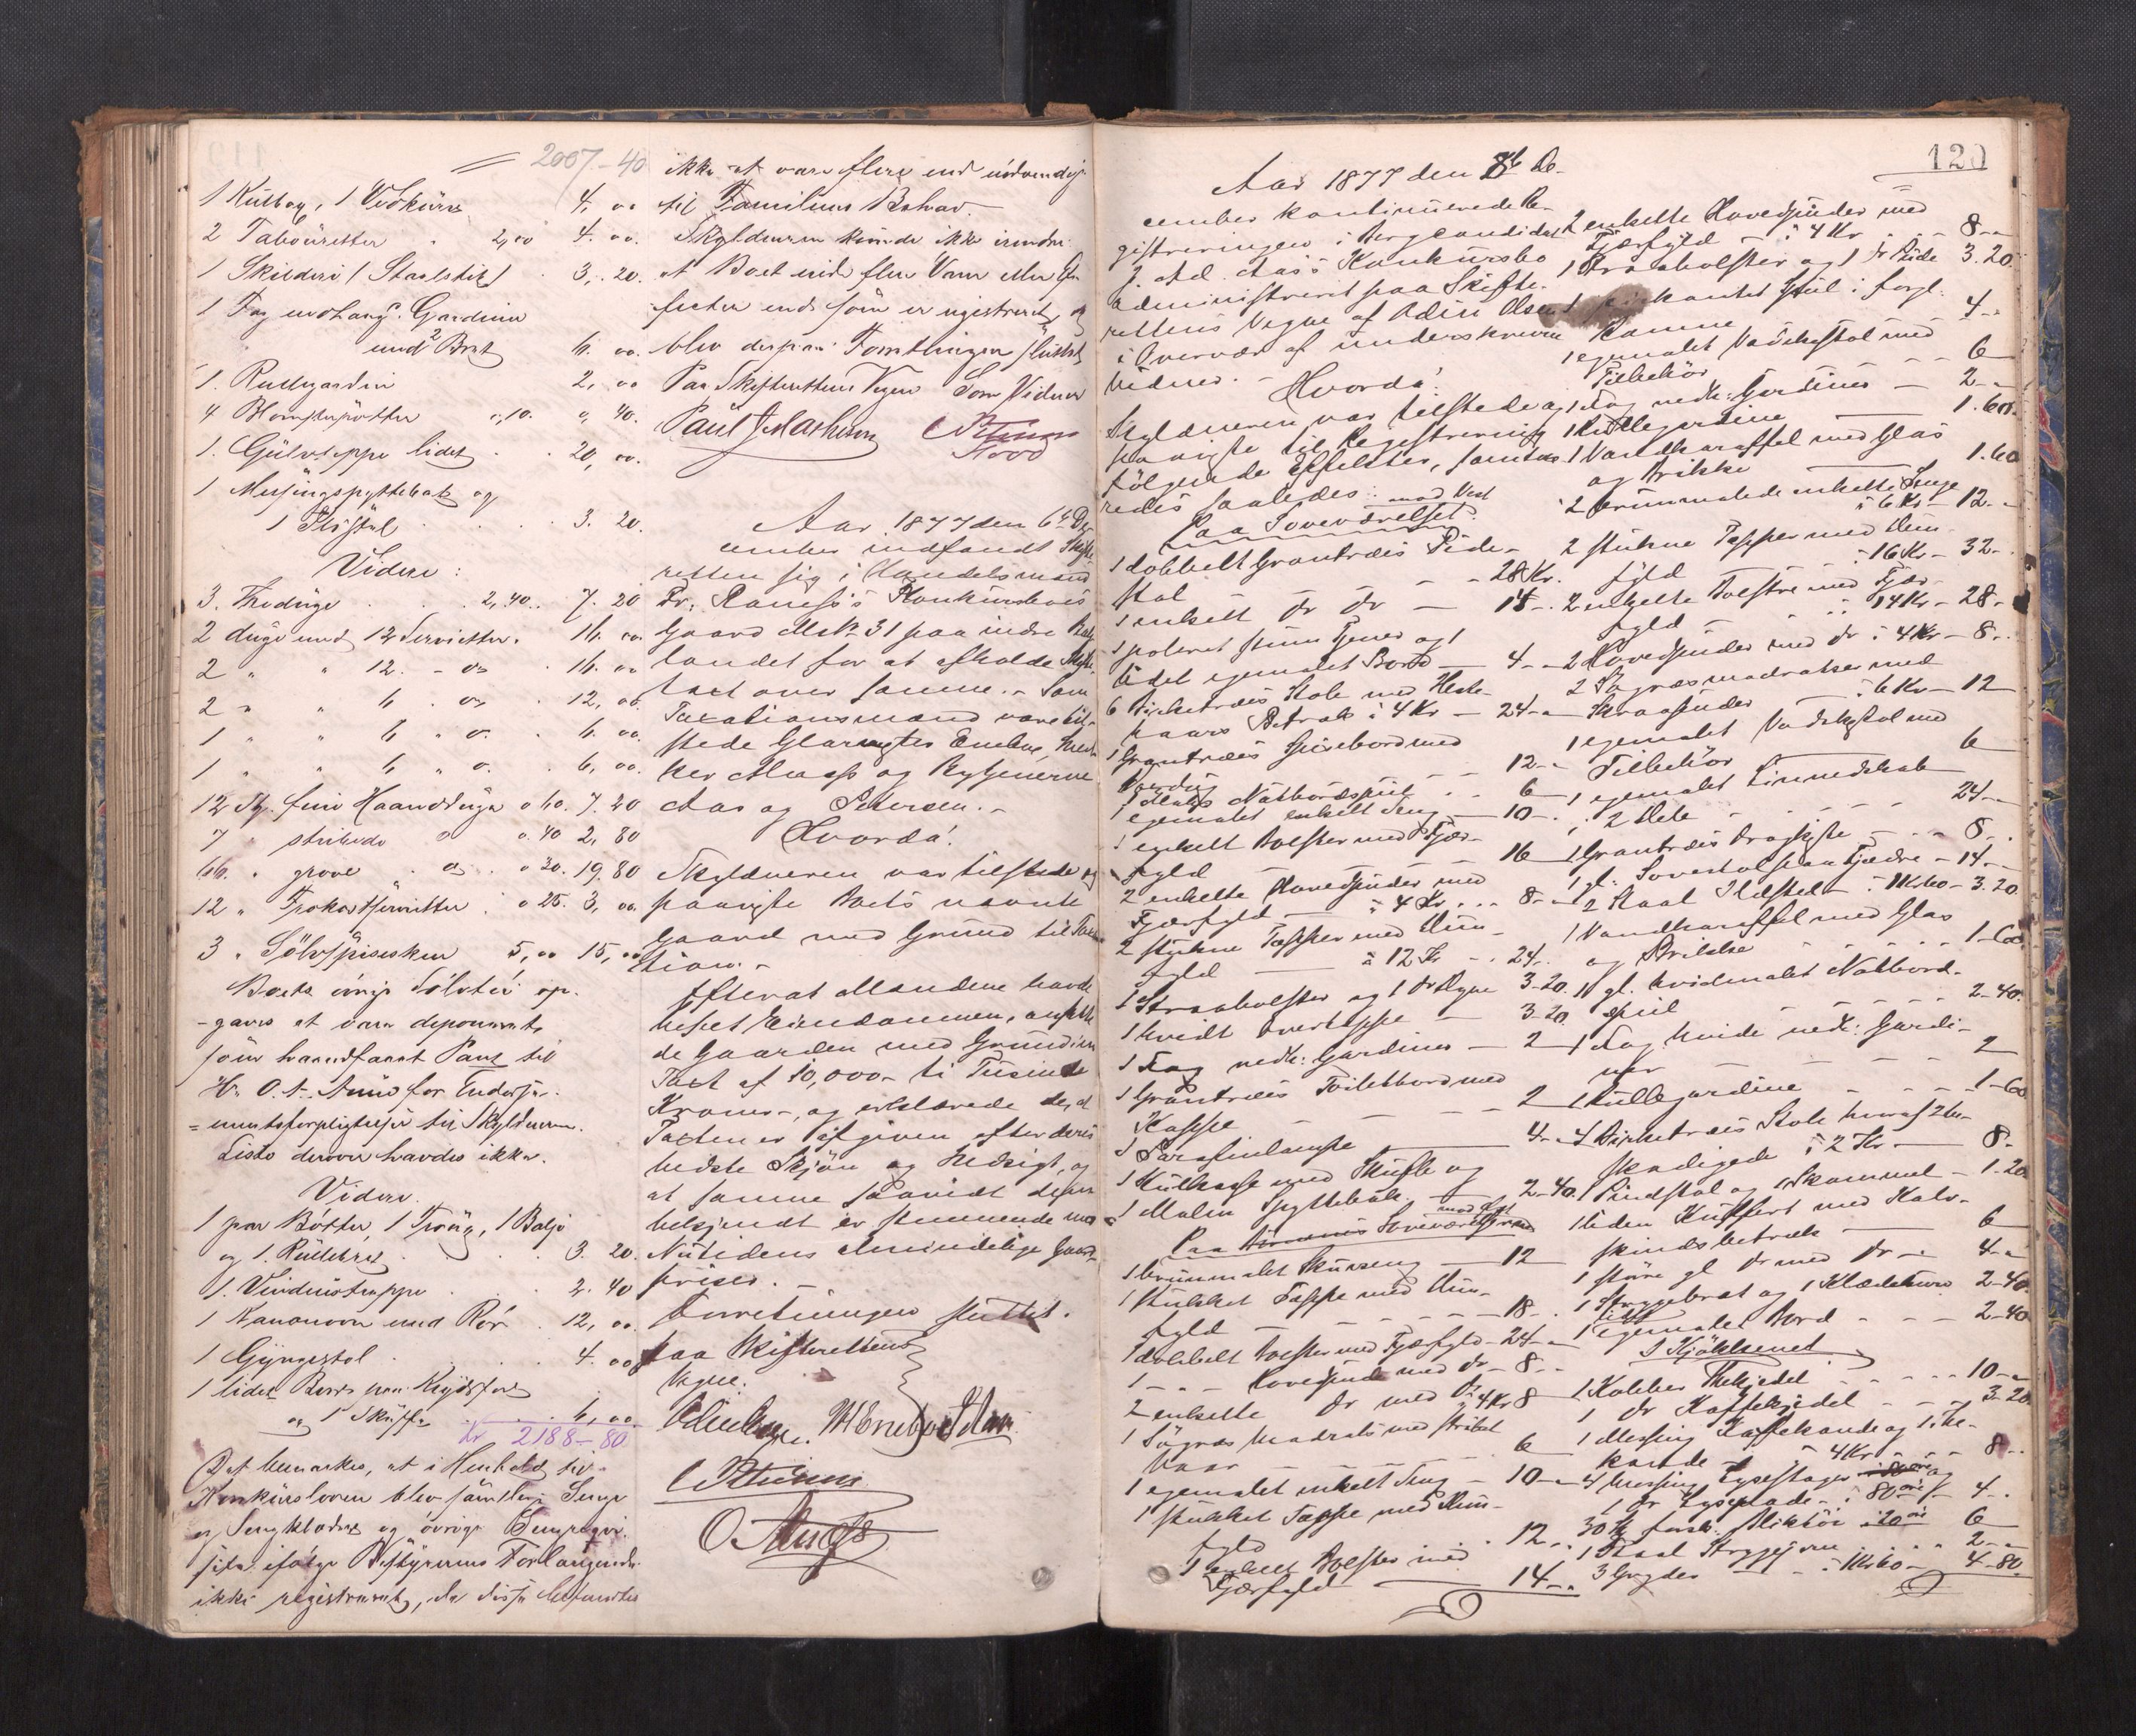 = 2007-40
1 Kulbox, 1 Vedkurv 4, 00
2 Tabouretter . 2,00 4. 00.
1 Skilderi (Staalstik) . 3,. 20.
1 Fag uldtang. Gardiner
med Bret 6. 00.
1. Rullegardin 2, 00
4 Blomsterpotter 0,10. 0, 40.
1. Gulvteppe lidet . . 20, 00.
1 Messingspyttebak og
1 Ildstel . . . . 3. 20.
Videre:
3. Theduge . . . 2,40.. 7. 20
2 duge med 12 Servietter. 16. 00.
2 " " 12. - do . 16. 00
2 " " 6 . do . 12, 00.
1 " " 6 " do. . 6. 00.
1 " " 6 " do. . 6, 00.
12 Stk. fine Haandduge 0 60. 7. 20
7 " stribede do 0. 40 2, 80
66. " grove . do . 0 30. 19. 80
12 " Frokostservietter . 0 25. 3, 00.
3 " Sølvspiseskeer 5, 00 15, 00
Boets øvrige Sølvtøi op-
-gaves at være deponerets
som haandfaaet Pant til
Hr O. A. for Endosse-
=mentsforpligtelser til Skyldneren.
Liste derover havdes ikke.
Videre.
1 par Bøtter, 1 Traug, 1 Balje
og 1. Rullebret . . 3. 20.
1. Vinduestrappe . . 2. 40
1 Kanonovn med Rør . 12, 00.
1 Gyngestol . . . 4. 00
1 liden Bord paa Krydsfod
og 1 Skuffe . . . 6, 00.
Kr 2188-80
Det bemerkes, at i Henhold til
Konkursloven blev samtlige Senge
og Sengklæder og øvrige Senge
ifølge Bestyrerens Forlangende
ikke registreret, da disse befandtes
ikke at være flere end nødvendigt
til Familiens Behov.
Skyldneren kunde ikke erindre
at Boet eied flere Varer eller Ef-
fecter end som er registreret, og
blev derpaa Forretningen sluttet.
Paa Skifterettens Vegne Som Vidner
Aar 1877 den 6te De-
cember indfandt Skifte-
retten sig i Handelsmand
Fr. Konkursbois
Gaard Mtk. 31 paa indre
landet for at afholde Skifte-
taxt over samme. - Som
Taxationsmænd vare til-
stede Glarmester Eneboe, Sned-
ker Maass og Rygjenerne
Aas og Petersen. -
Hvorda!
Skyldneren var tilstede og
paaviste Boets nævnte
Gaard med Grund til Taxa-
tion. -
Efterat Mændene havde
beseet Eiendommen, ansatte
de Gaarden med Grund i en
Taxt af 10,000- ti Tusinde
Kroner-, og erklærede de, at
Taxten er afgiven efter deres
bedste Skjøn og Indsigt, og
at samme saavidt dem
bekjendt er stemmende med
Nutidens almindelige Gaards-
priser. -
Forretningen sluttet.
Paa Skifterettens
Vegne.
120
Aar 1877 den 8de De-
cember kontinuerede Re-
gistreringen i Bergcandidat
J. Chr. Aas's Konkursbo
administreret paa Skifte-
rettens Vegne af Odin Olsen
i Overvær af underskrevne
Vidner. -
Hvorda!
Skyldneren var tilstede og
paaviste til Registrering
følgende Effekter,
redes saaledes:
Paa Soveværelset mod Vest
1 dobbelt Grantræs
stol - - - 28 Kr.
1 enkelt do do - 14-.
1 poleret stum Tjener og 1
lidet egemalet Bord - 4--
6 Birketræs Stole med Heste-
haars Betræk à 4 Kr - 24--
1 Grantræs Spisebord med
Voxdug - - 12--
1 Natbordspeil . . 6
1 egemalet enkelt Seng - 10-.
1 enkelt Bolster med Fjær-
fyld - 16
2 enkelte Hovedpuder med
Fjærfyld - à 4 Kr ... 8--
2 stukne Tæpper med Dun-
fyld - à 12 Kr - . 24-.
1 Straabolster og 1 do Dyne 3-20.
1 hvidt Overteppe - 3-20
1 Fag nedh: Gardiner - 2
1 Grantræs Toiletbord med
Kappe - - - 2
1 Parafinlampe - 4--
1 Kulkasse med Skuffe og
1 Malm Spyttebak. - 2-40.
Paa Soveværelset mod Øst
1 brunmalet Skuvseng - 12
1 stukket Tæppe med Dun-
fyld - - - - 18-.
1 dobbelt Bolster med Fjærfyld - 24-.
1 - . - Hovedpude med do - 8-.
2 enkelte do med do à 4 Kr 8
1 Søgræs Madrats med stribet
Vaar - - - 6
1 egemalet enkelt Seng - 10--
1 stukket Tæppe med Dun-
fyld - - - . 12..
1 enkelt Bolster med
Fjærfyld - 14-.
2 enkelte Hovedpuder med
Fjærfyld - à 4 Kr - - 8--
1 Straabolster og 1 do Pude 3.20.
1 kantet Speil i forgl.
Ramme - - 4--
1 egemalet Vaskestol med
Tilbehør - - 6
1 Fag nedh: Gardiner - 2--
1 Rullegardine - 1.60.
1 Vandkaraffel med Glas
og Brikke - 1.60
2 brunmalede enkelte Senge
à 6 Kr - 12--
2 stukne Tæpper med Dun
fyld - à 16 Kr - 32-.
2 enkelte Bolstre med Fjær-
fyld - à 14 Kr - 28-
2 Hovedpuder med do à 4 Kr - 8-.
2 Søgræsmadratser med
Skraapuder - à 6 Kr - 12
1 egemalet Vaskestol med
Tilbehør - 6
1 egemalet Linnedskab
i 2 Dele - - - - 24--
1 Grantræs Dragkiste - - - 8-.
1 gl: Sovestol paa Fjædre - 14--
2 Staal Ildstel - à 1 Kr 60 - 3.20
1 Vandkaraffel med Glas
og Brikke - - - 1-60.
1 gl. hvidmalet Natbord-
speil - - - 2-40.
1 Fag hvide nedh: Gardi-
ner - - - 2
1 Rullegardine - - - 1-60
4 Birketræs Stole hvoraf 2 be-
skadigede à 2 Kr - 8-
1 Pindstol og 1 Skammel - 1.20
1 liden Kuffert med Kalv-
skindsbetræk - 6
1 større gl do med do - 4--
1 Strygebræt og 1 Klædekurv 2-40.
1 lidet egemalet Bord . - - 2-40
I Kjøkkenet
1 Kobber Thekjedel - - - - 10--
1 do Kaffekjedel - - - 3-20
1 Messing Kaffekande og 1 The-
kande - à 4 Kr - - - 8--
4 Messing Lysestager og
1 do Lyseplade - à 80 øre - 4-.
30 Stk forsk. Bliktøi à 20 øre 6
1 Staal Strygejern - - 2--
3 Gryder - - à 1 Kr 60 - 4-80.